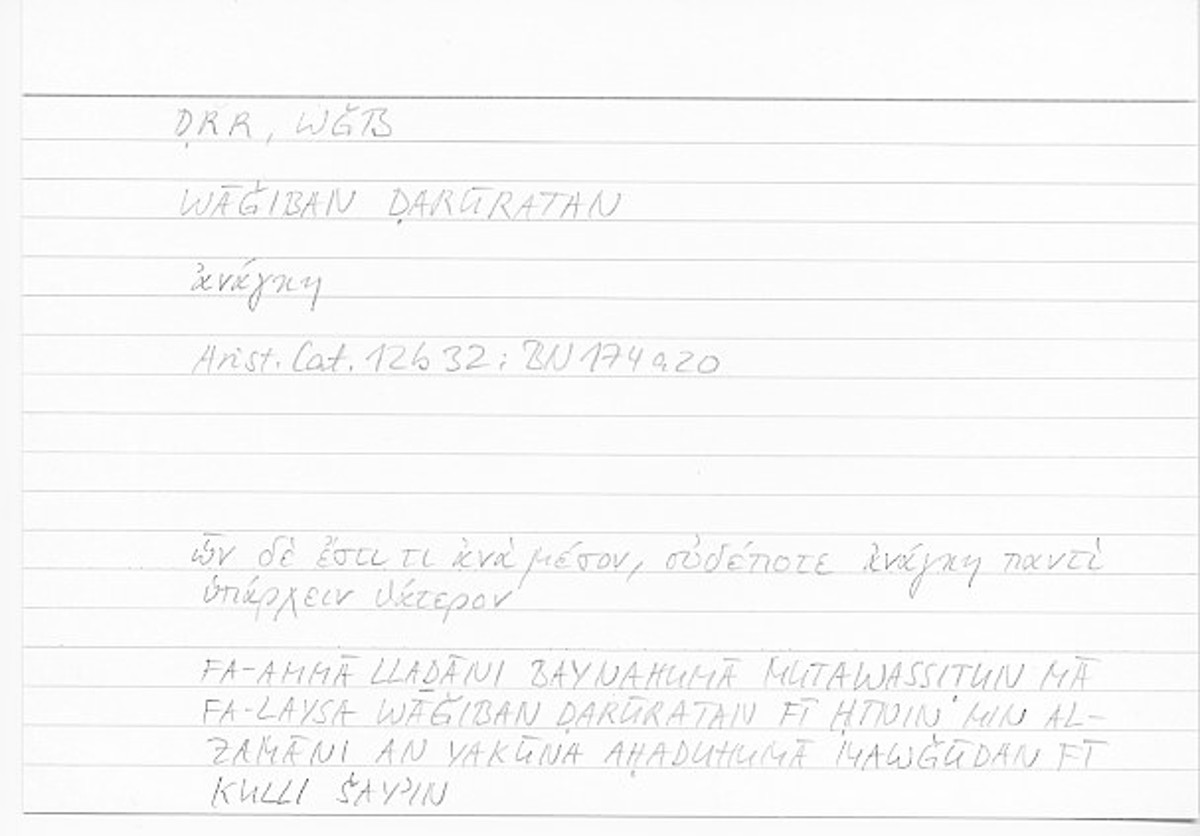 ḌRR, WǦB
WĀǦIBAN ḌARŪRATAN
ἀνάγκη
Arist. Cat. 12b32; BN 174a20
ὧν δὲ ἔστι τι ἀνὰ μέσον, οὐδέποτε ἀνάγκη παντὶ
ὑπάρχειν θάτερον
FA-AMMĀ LLADĀNI BAYNAHUMĀ MUTAWASSIṬUN MĀ
FA-LAYSA WĀǦIBAN ḌARŪRATAN FĪ ḤĪNIN MIN AL-
ZAMĀNI AN YAKŪNA AḤADUHUMĀ MAWǦŪDAN FĪ
KULLI ŠAYʾIN